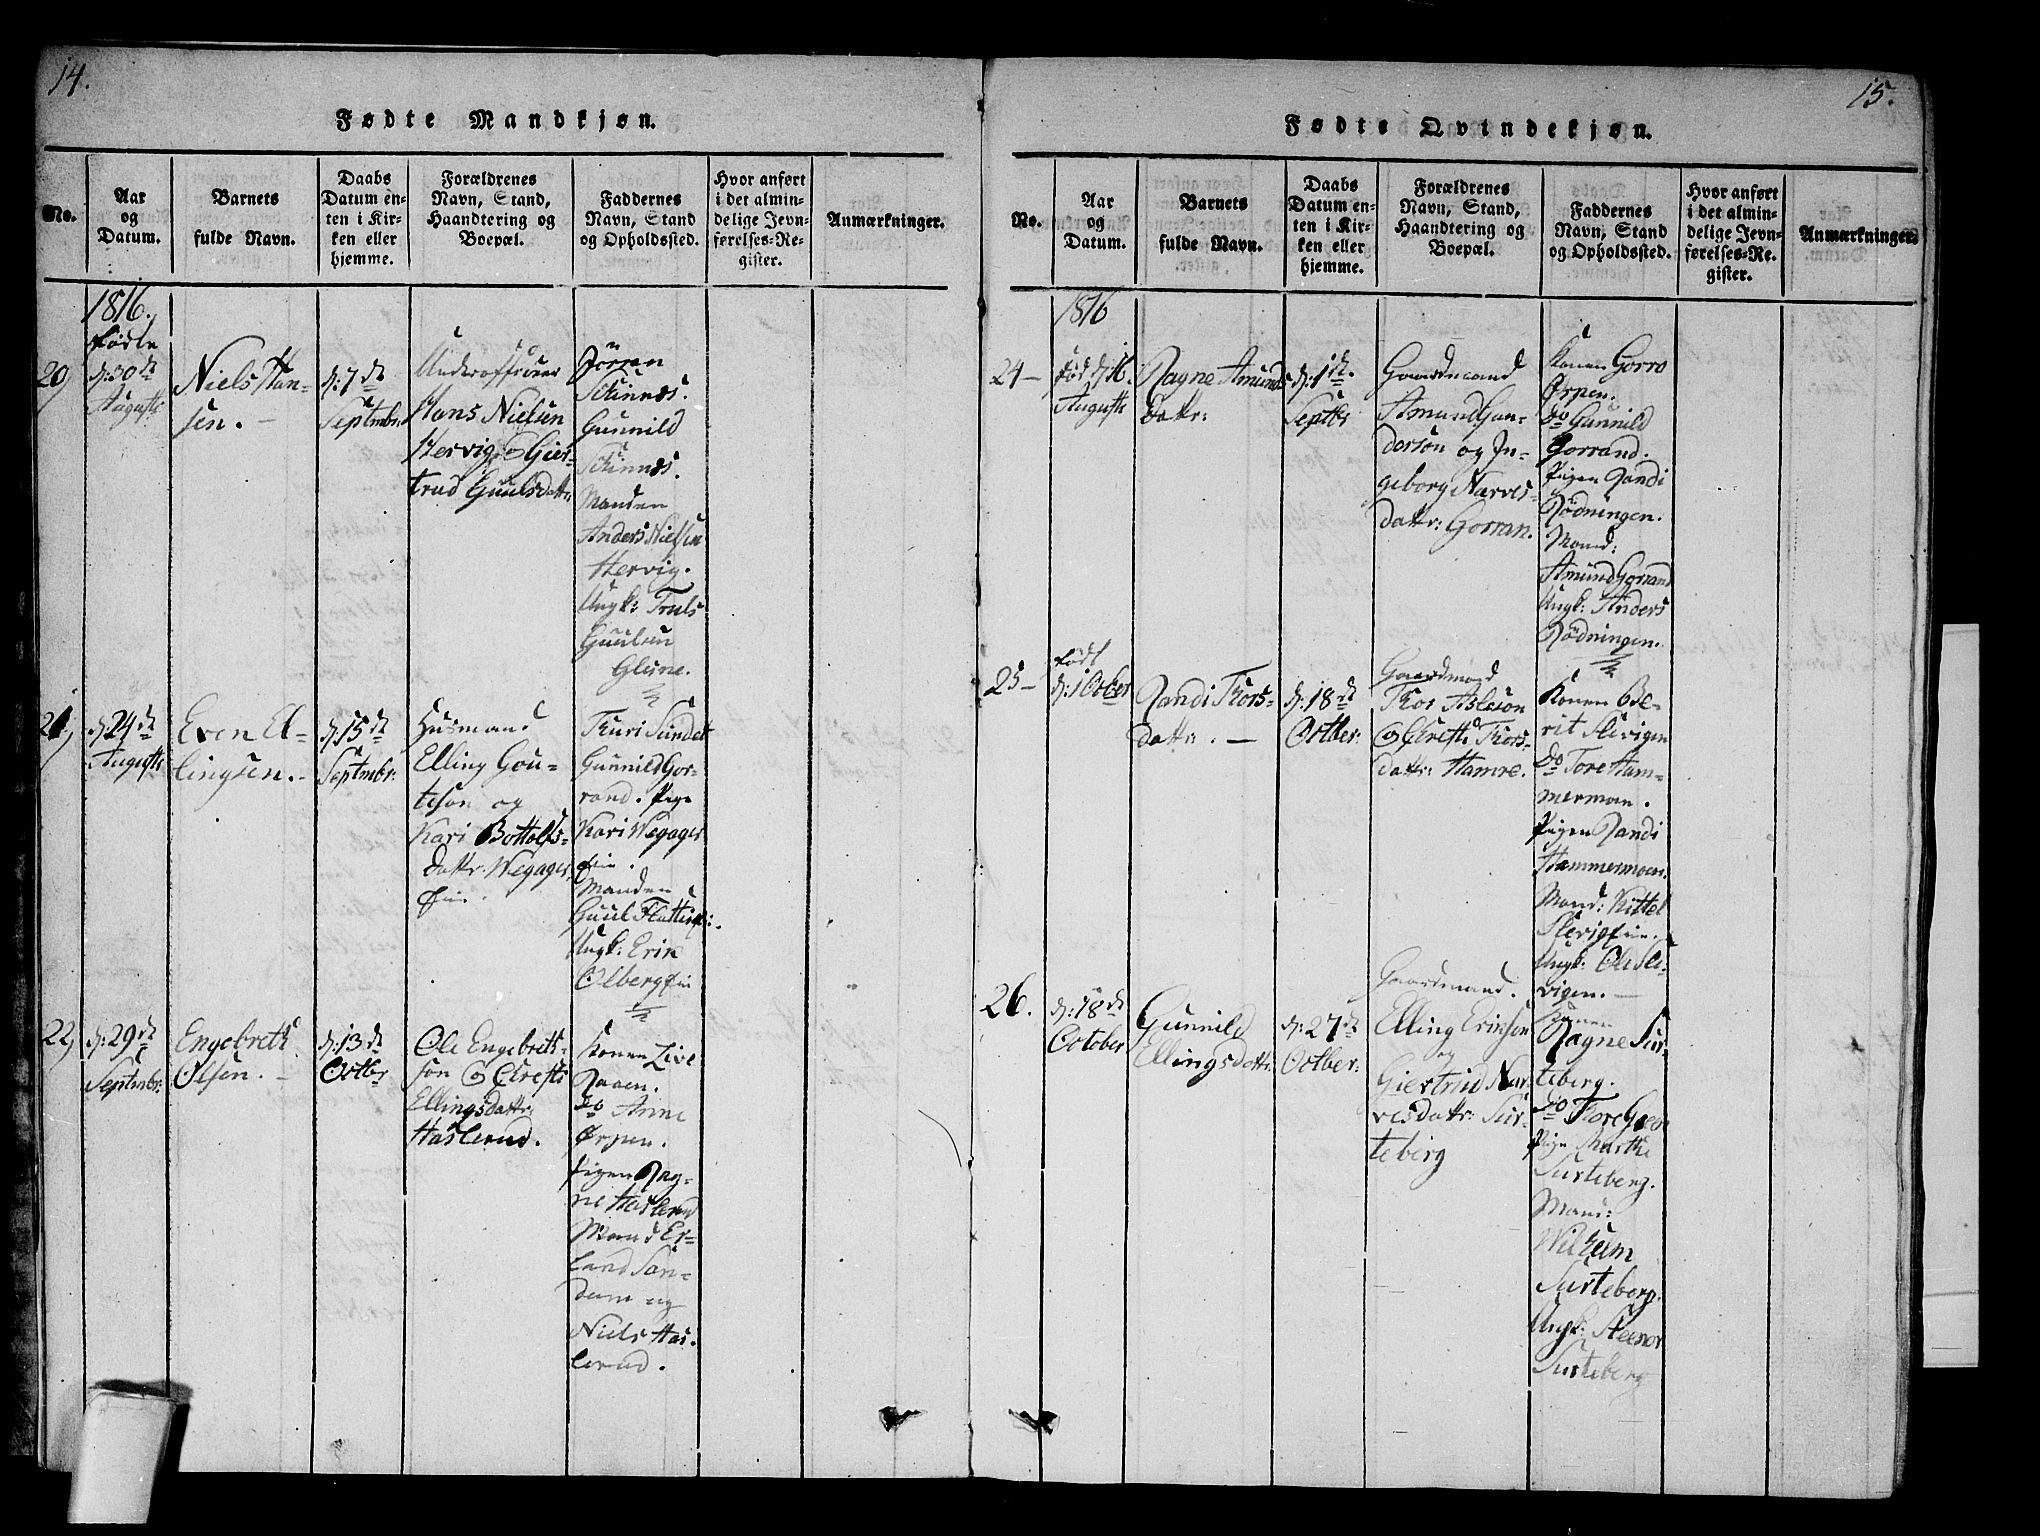 14.
Fødte Mandkjøn.
No.
Aar
og
Datum.
Barnets
fulde Navn.
Daabs
Datum en-
ten i Kir-
ken eller
hjemme.
Forældrenes
Navn, Stand,
Haandtering og
Boepæl.
Faddernes
Navn, Stand
og Opholdssted.
Hvor anført
i det almin-
delige Jevn-
førelses-Re-
gister.
Anmærkninger.
1816.
20,
fødte
d: 30de
Augusti
Niels Han-
sen. —
d: 7de
Septmbr.
Underofficeer
Hans Nielsen
Hervig & Gier-
trud Guulsdattr
Jörgen
Skinnes.
Gunnild
Skinnes.
Manden
Anders Nielsen
Hervig.
Ungk: Truls
Guulsen
Glesne.
21,
d: 24de
Augusti
Even El-
lingsen. -
d: 15de
Septmbr:
Husmand
Elling Gou-
teson og
Kari Bottolfs-
dattr. Wegager-
eie.
Thuri Sundet
Gunnild Gor-
rand. Pige
Kari Wegager
eie.
Manden
Guul Flatteie.
Ungk: Erik
Olbergeie
22,
d: 29de
Septmbr:
Engebreth
Olsen. -
d: 13de
Octbr
Ole Engebreth-
son & Christi
Ellingsdattr
Haslerud.
Konen Live
Raaen.
do Anne
Ørpen.
Pigen Rag-
ne Haslerud
Mand Er-
land San-
dum og
Niels Has-
lerud.
15.
Fødte Qvindekjøn.
No.
Aar
og
Datum.
Barnets
fulde Navn.
Daabs
Datum en-
ten i Kir-
ken eller
hjemme.
Forældrenes
Navn, Stand,
Haandtering og
Boepæl.
Faddernes
Navn, Stand
og Opholdssted.
Hvor anført
i det almin-
delige Jevn-
førelses-Re-
gister.
Anmærkninger.
1816
24 —
fød d: 16.
Augusti
Ragne Amunds
Dattr:
d: 1de.
Septbr
Gaardmand
Amund Gun-
dorson og In-
geborg Narves-
dattr: Gorran.
Konen Gorro
Ørpen.
do Gunnild
Gorrand.
Pigen Randi
Rødningen.
Mand:
Amund Gorrand
Ungk: Anders
Rødningen.
25 —
født
d: 1 Octber
Randi Thors-
dattr. —
d: 18de
Octber:
Gaardmand
Thor Asleson
& Christi Thors-
dattr: Hamre.
Konen Be-
rit Slevigen
do Tore Ham-
mermoen.
Pigen Randi
Hammermoen.
Mand: Kittel
Slevigeie.
Ungk: Ole Sle-
vigen. —
26.
d: 18de
October
Gunnild
Ellingsdattr:
d: 27de
Octber:
Gaardmand.
Elling Erikson
og
Giertrud Nar-
vesdattr: Sur-
teberg
Konen
Ragne Sur-
teberg.
do Thore
Pige Marthe
Surteberg.
Mand:
Wilhelm
Surteberg.
Ungk: Steenor
Surteberg